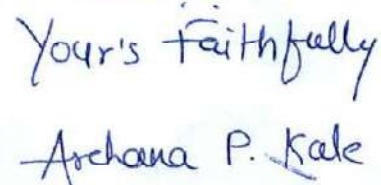 Your's Faithfully
Archana P. Kale